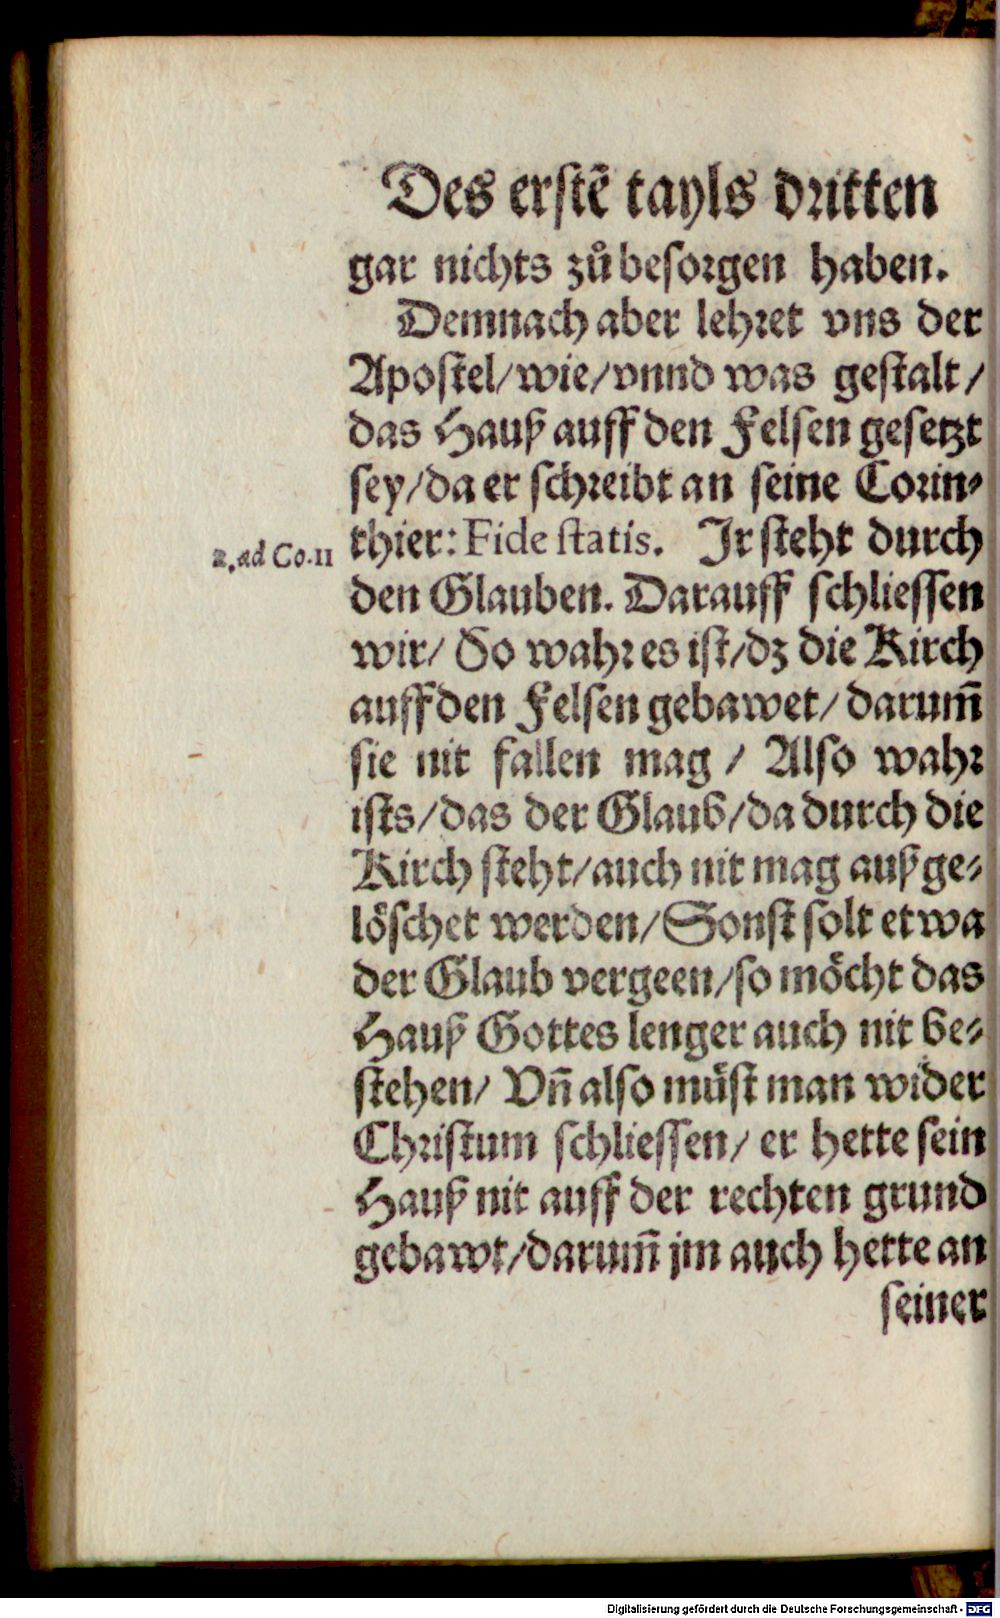 Des erstẽ tayls dritten
gar nichts zů besorgen haben.
Demnach aber lehret vns der
Apostel/wie/vnnd was gestalt/
das Hauß auff den Felsen gesetzt
sey/da er schreibt an seine Corin-
2.ad Co.11
thier: Fide statis. Ir steht durch
den Glauben. Darauff schliessen
wir/ So wahr es ist/dz die Kirch
auff den Felsen gebawet/ darum̃
sie nit fallen mag / Also wahr
ists/das der Glaub/da durch die
Kirch steht/auch nit mag außge-
löschet werden/Sonst solt etwa
der Glaub vergeen/so möcht das
Hauß Gottes lenger auch nit be-
stehen/ Vñ also müst man wider
Christum schliessen/ er hette sein
Hauß nit auff der rechten grund
gebawt/darum̃ jm auch hette an
seiner
Digitalisierung gefördert durch die Deutsche Forschungsgemeinschaft - DFG